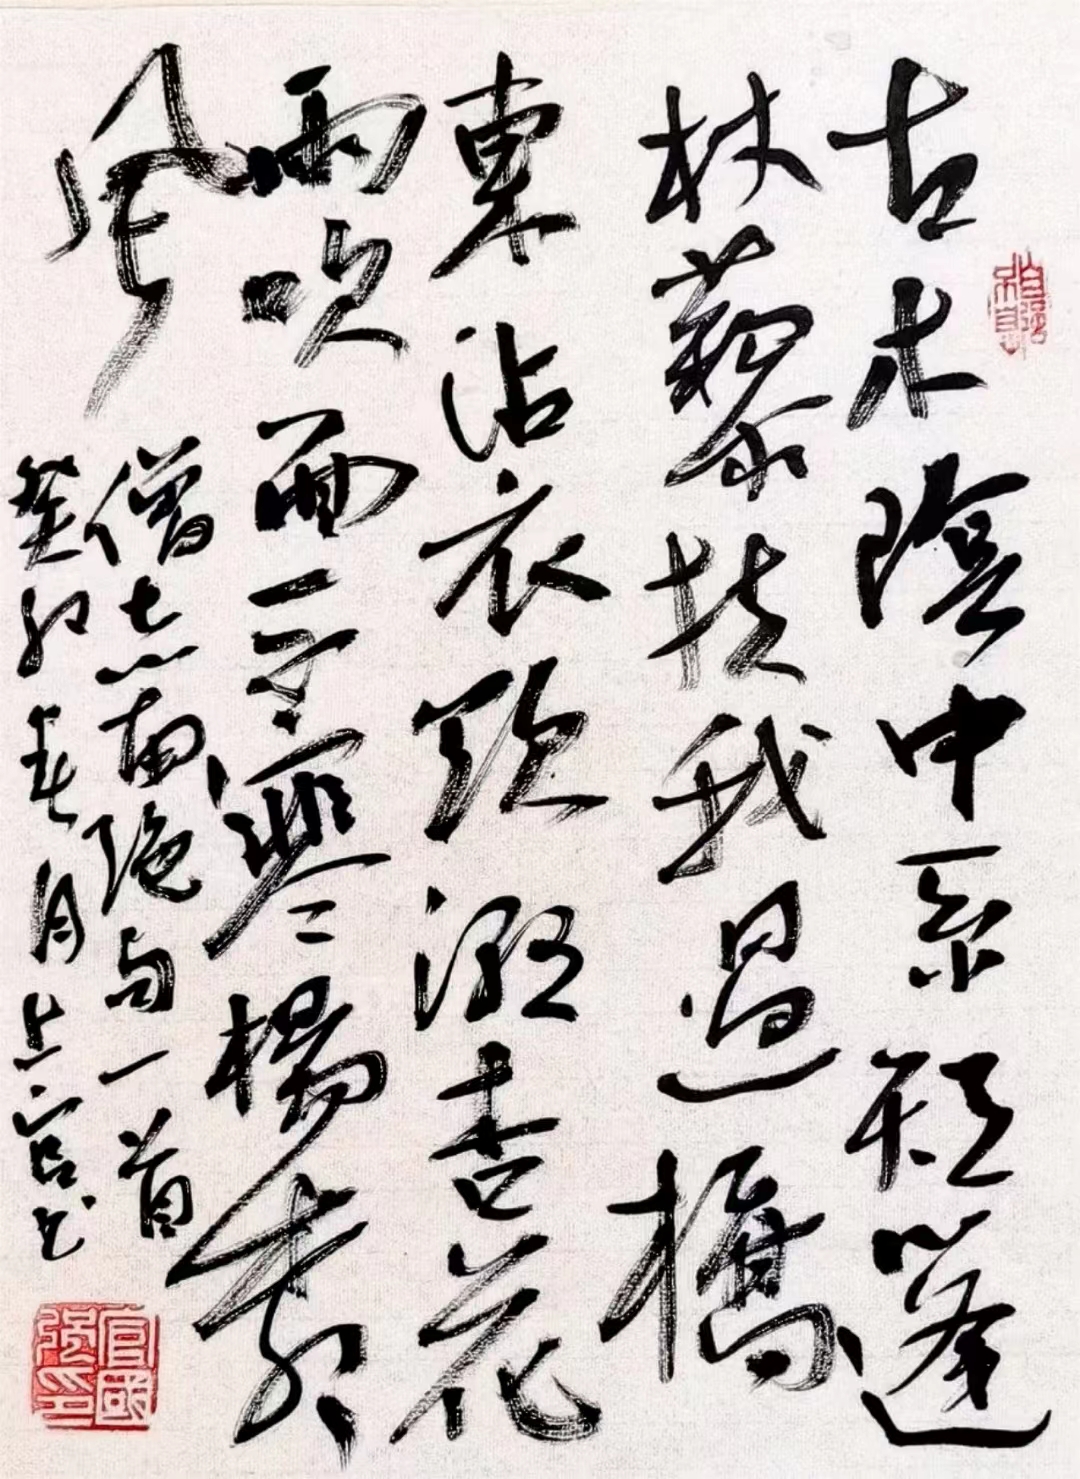 古木陰中系短篷
杖藜扶我過橋
東沾衣欲濕杏花
雨吹面不寒楊柳
風
僧志南絶句一首
癸卯春月官书
官國強印